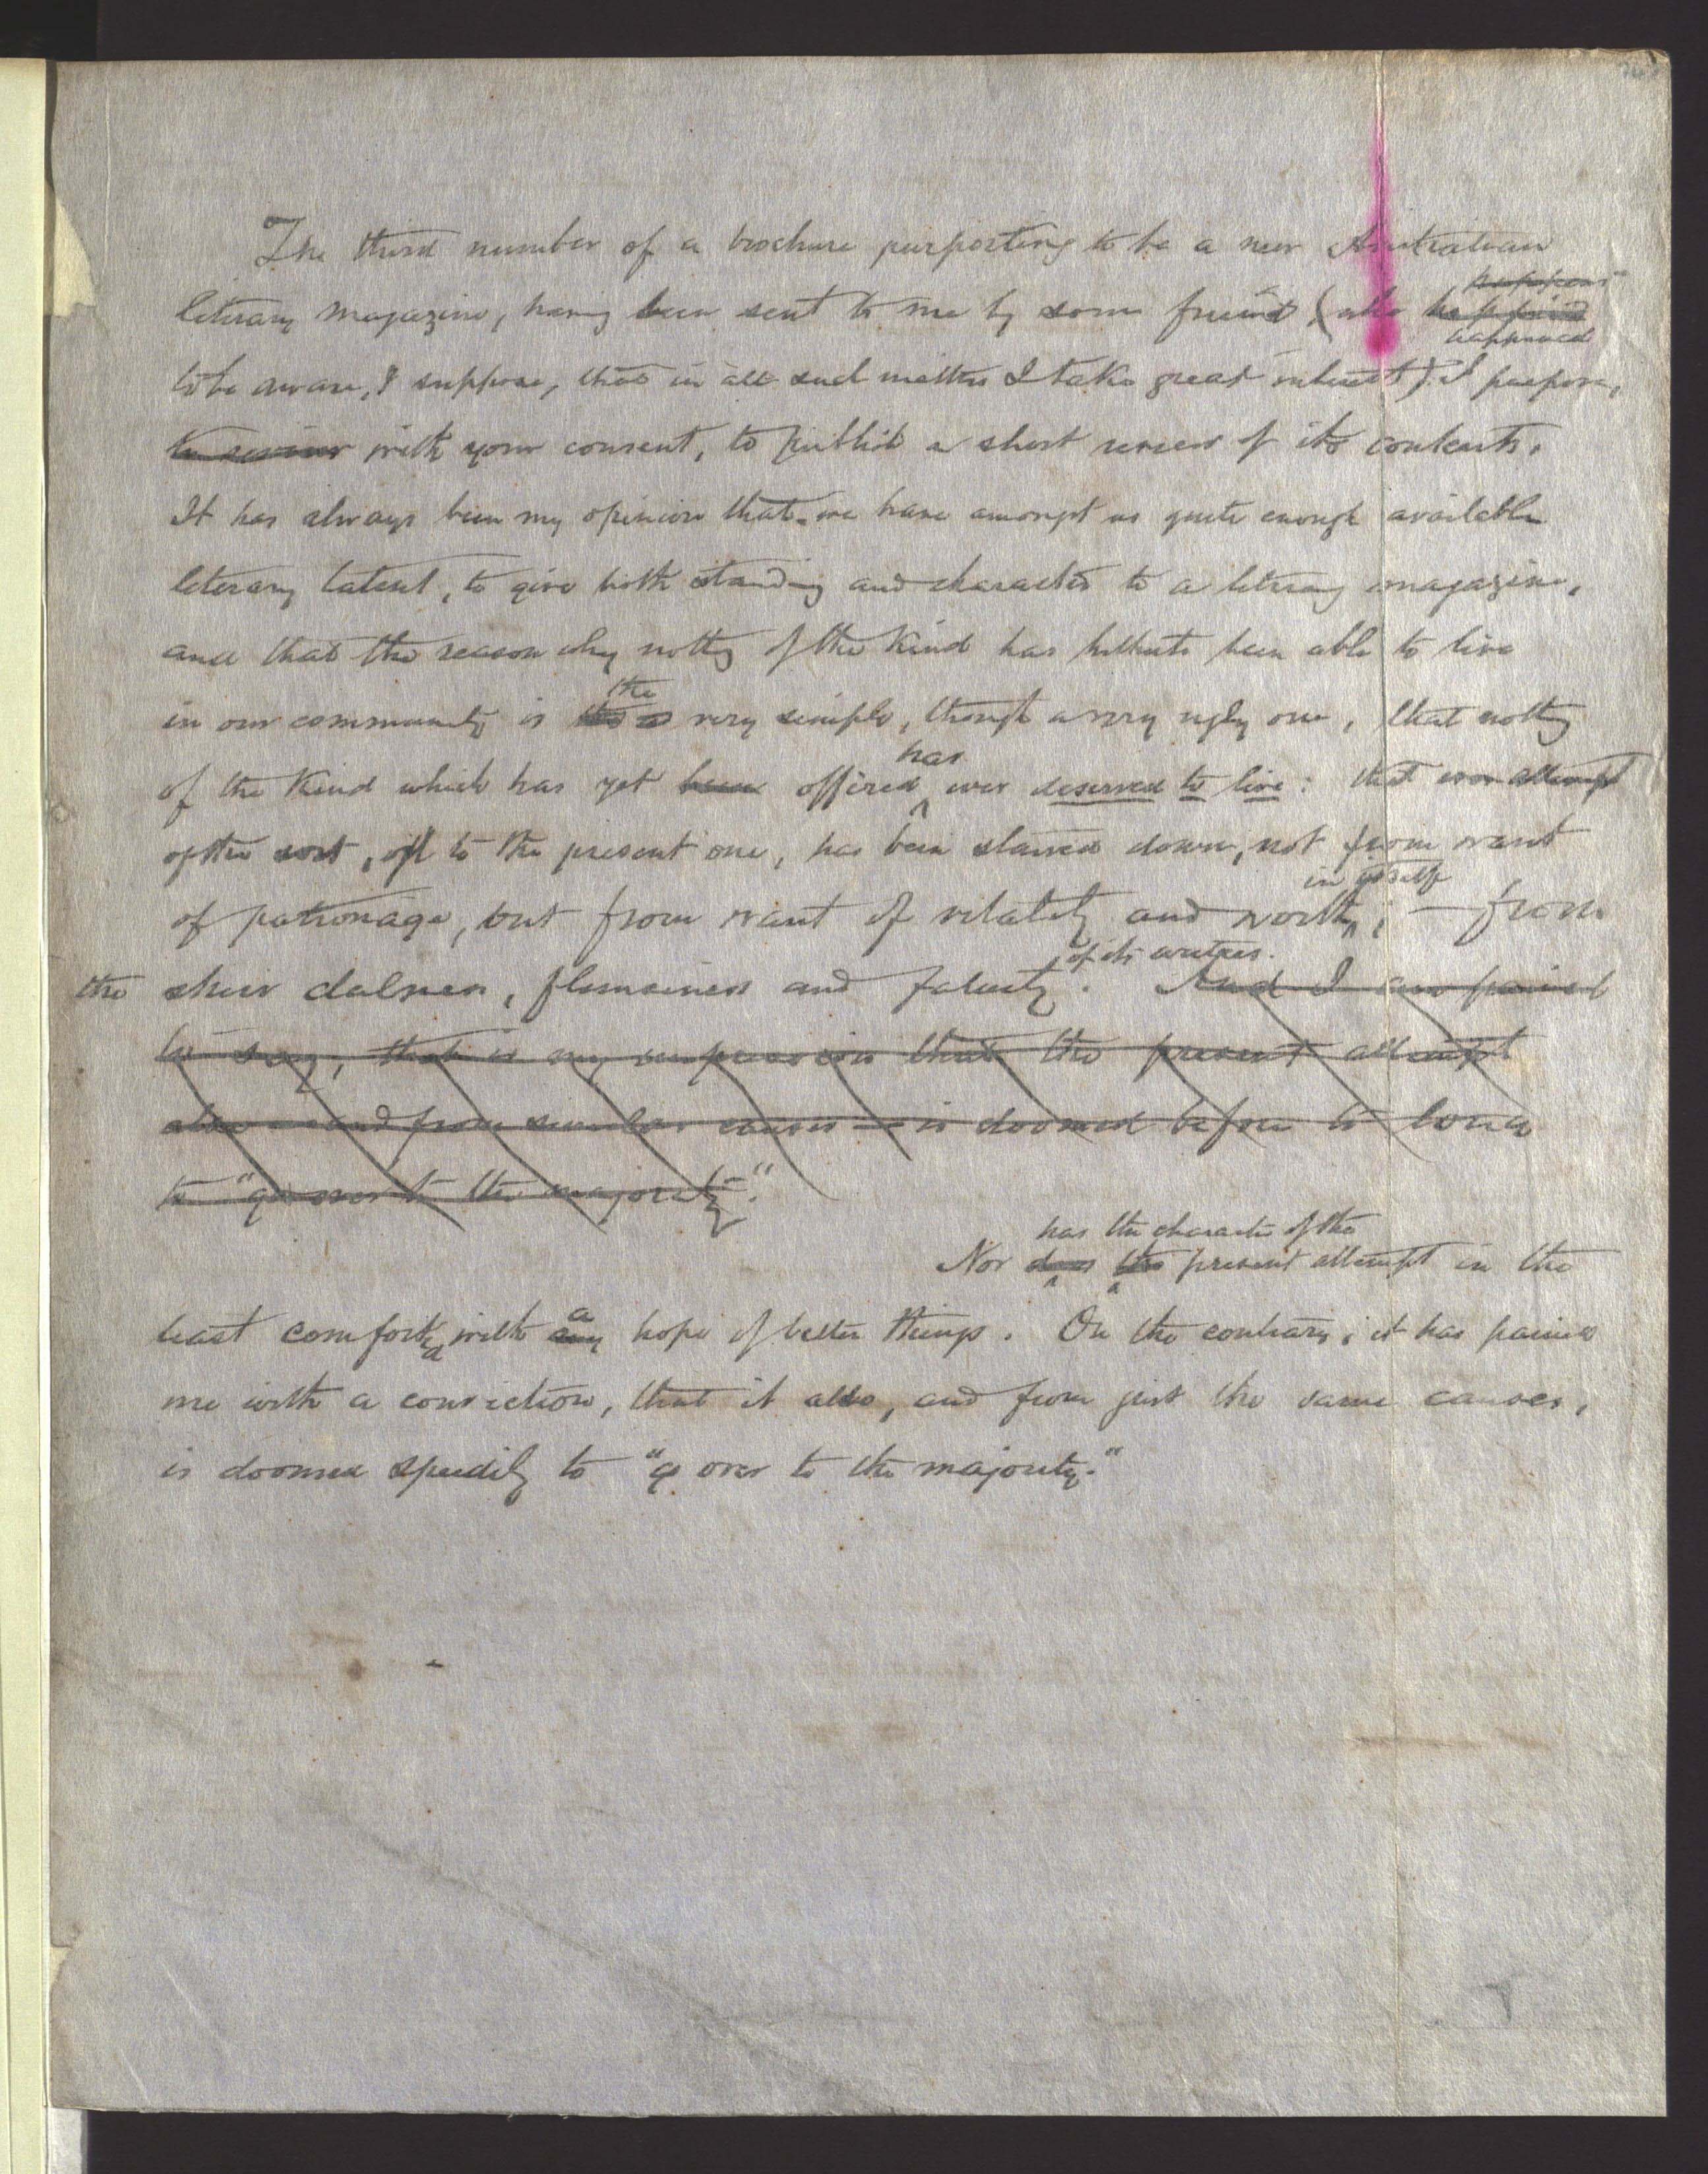 The third number of a brochure purporting to be a new Australian
happens
literary magazine, having been sent to me by some friend (who happened
happened
to be aware, I suppose, that in all such matters I take great interest) I propose,
to review with your consent, to publish a short review of its contents.
It has always been my opinion that we have amongst us quite enough available
literary talent, to give both standing and character to a literary magazine,
and that the reason why nothing of the kind has hitherto been able to live
the
in our community is very simple, though a very ugly one, that nothing
has
of the kind which has yet been offered ever deserved to live: that ever attempt
of the sort, up to the present one, has been starved down, not from want
in itself
of patronage, but from want of vitality and worth; — from
of its writers.
the sheer dulness, flimsiness and fatuity. And I am pained
to say, that is my impression that the present attempt
also — and from similar causes — is doomed before to long
to "go over to the majority".
has the character of the
Nor does the present attempt in the
a
least comforted with any hope of better things. On the contrary, it has pained
me with a conviction, that it also, and from just the same causes,
is doomed speedily to "go over to the majority."